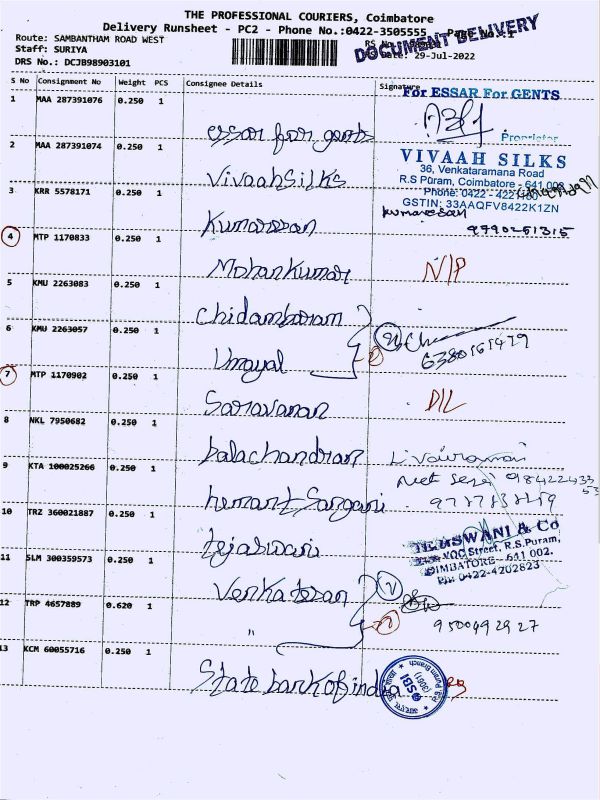 THE PROFESSIONAL COURIERS, Coimbatore
Delivery Runsheet - PC2 - Phone No.:0422-3505555 Page No.:1
DOCUMENT DELIVERY
Route: SAMBANTHAM ROAD WEST
Staff: SURIYA
Date: 29-Jul-2022
DRS No.: DCJB98903101
S No Consignment No Weight PCS Consignee Details Signature
1 MAA 287391076 0.250 1 essar for gents
For ESSAR For GENTS
Proprietor
2 MAA 287391074 0.250 1 Vivaah Silks
VIVAAH SILKS
36, Venkataramana Road
R.S Puram, Coimbatore - 641 002
Phone: 0422 - 4221
GSTIN: 33AAQFV8422K1ZN
3 KRR 5578171 0.250 1 Kumaresan
kumaresan
9790251315
4 MTP 1170833 0.250 1 Mohan Kumar N/P
5 KMU 2263083 0.250 1 Chidambaram
6 KMU 2263057 0.250 1 Umayal
6380161479
7 MTP 1170902 0.250 1 Saravanan D/L
8 NKL 7950682 0.250 1 balachandran
9 KTA 100025266 0.250 1 hemant Sangani
10 TRZ 360021887 0.250 1 tejaswani
TEJASWANI & Co
VOC Street, R.S.Puram,
COIMBATORE - 641 002.
Ph: 0422-4202823
11 SLM 300359573 0.250 1 Venkatesan
12 TRP 4657889 0.620 1 "
9500492927
13 KCM 60055716 0.250 1 State bank of india
SBI